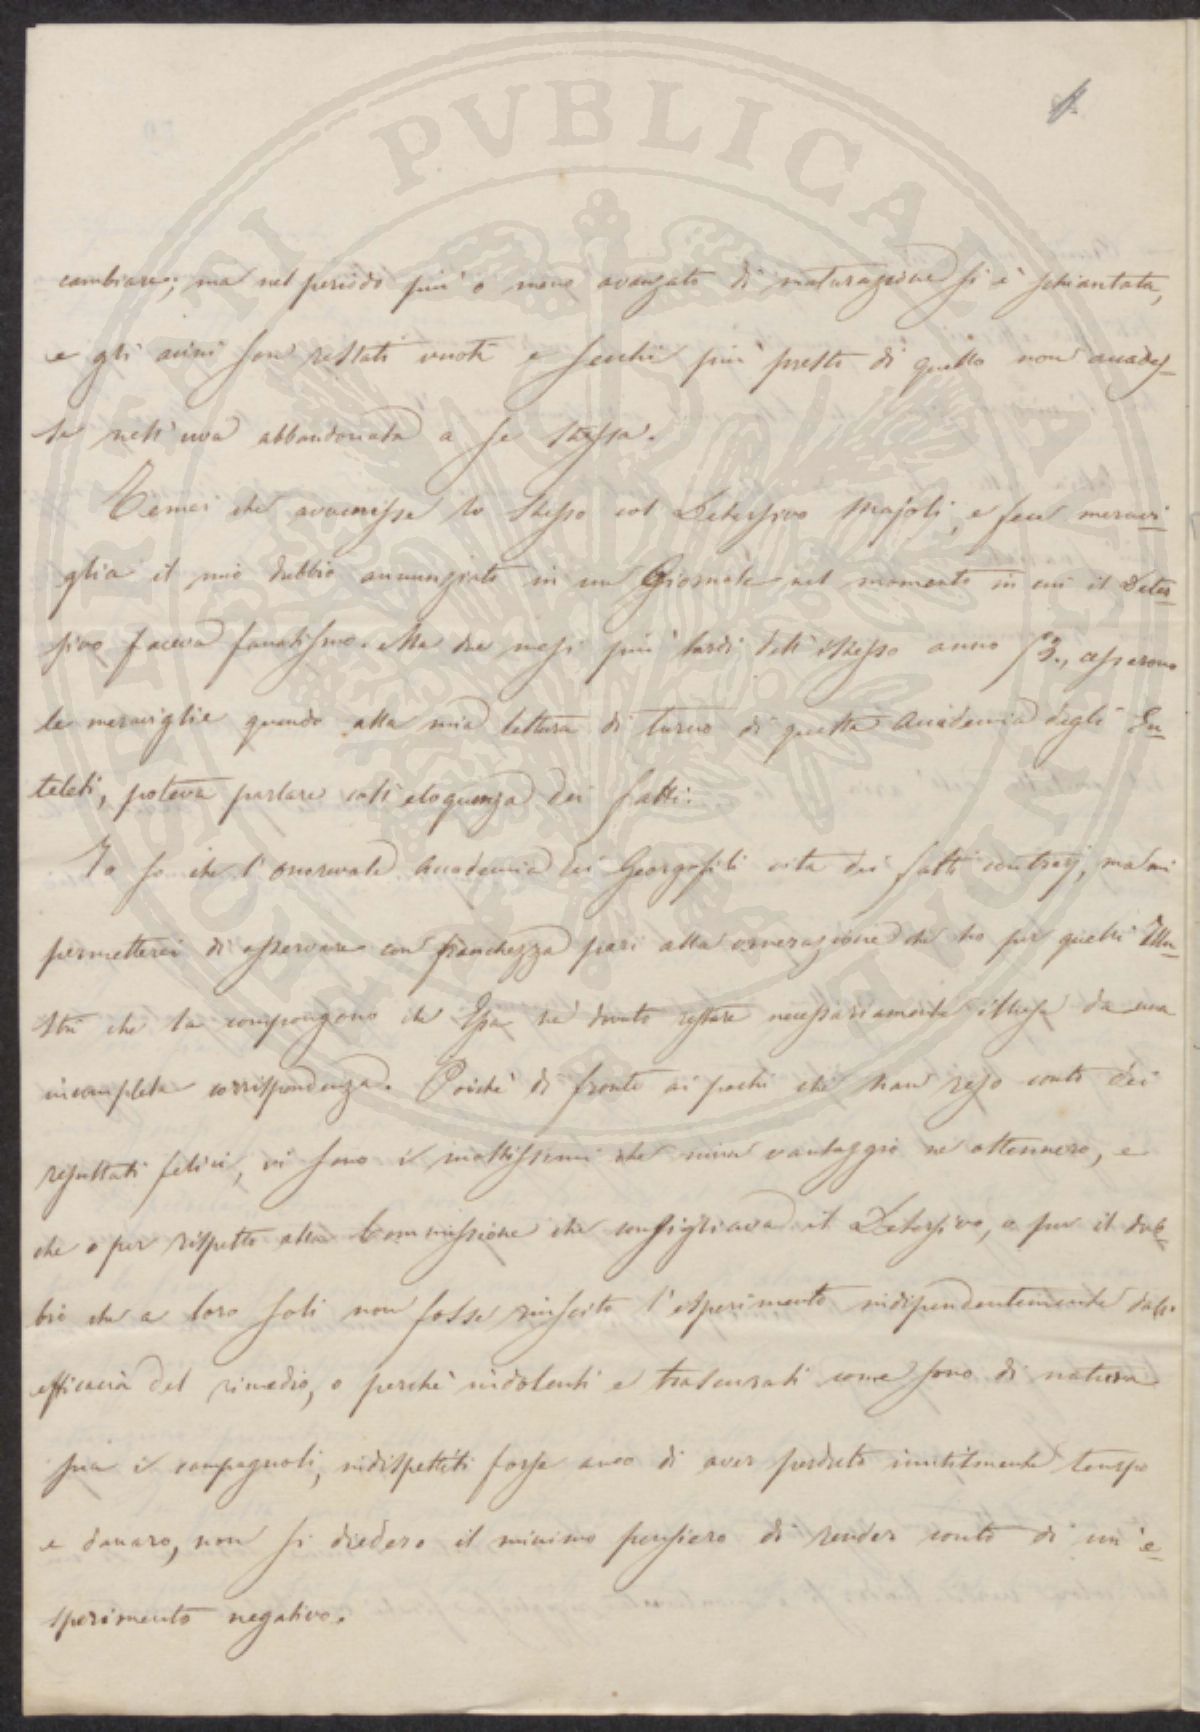 cambiare; ma nel periodo più o meno avanzato di maturazione si è schiantata,
e gli acini son restati vuoti e secchi più presto di quello non accades-
se nell'uva abbandonata a se stessa.
Temei che avvenisse lo stesso col Detersivo Majoli, e fece meravi-
glia il mio dubbio annunziato in un Giornale nel momento in cui il Deter-
sivo faceva fanatismo. Ma due mesi più tardi dell'istesso anno 53., cessarono
le meraviglie quando alla mia lettura di turno di questa Accademia degli En-
teleti, poteva parlare coll'eloquenza dei fatti.
Io so che l'onorevole Accademia dei Georgofili cita dei fatti contrarj, ma mi
permetterei di osservare con franchezza pari alla venerazione che ho per quelli Illu-
stri che la compongono che Essa ne dovuto restare necessariamente illusa da una
incompleta corrispondenza. Poichè di fronte ai pochi che han reso conto dei
resultati felici, vi sono i moltissimi che niun vantaggio ne ottennero, e
che o per rispetto alla Commissione che consigliava il Detersivo, o per il dub-
bio che a loro soli non fosse riuscito l'esperimento indipendentemente dall'
efficacia del rimedio, o perchè indolenti e trascurati come sono di natura
sua i campagnoli, indispettiti forse anco di aver perduto inutilmente tempo
e danaro, non si diedero il minimo pensiero di render conto di un'e-
sperimento negativo.
PVBLICAE